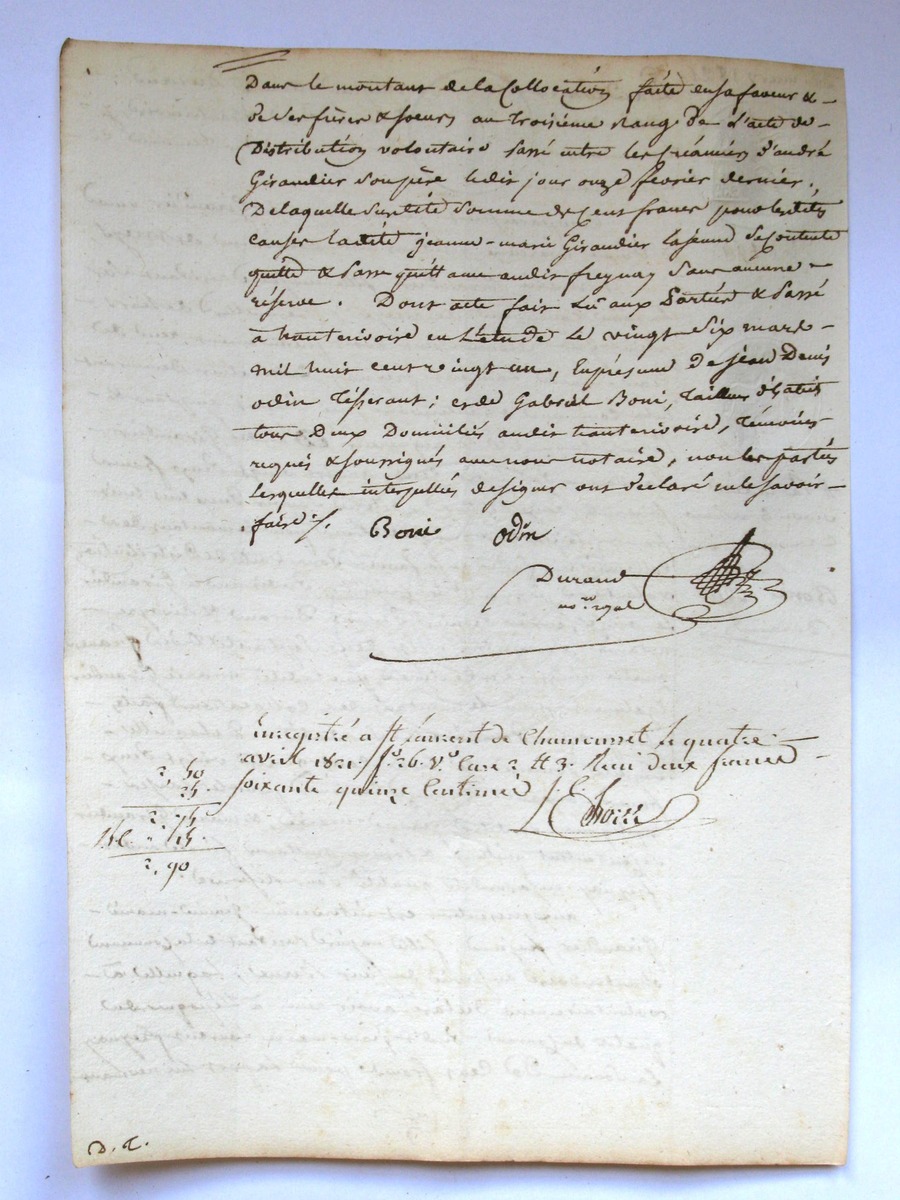 Dans le montant de la Collocation faite en sa faveur &
de ses frères & soeurs au troisième Rang de L'acte de
Distribution volontaire passé entre les créanciers d'andré
Giraudier son père ledit jour onze février dernier.
De laquelle susdite somme de cent francs pour lesdites
causes ladite jeanne-marie Giraudier la jeune se contente
quitte & passe quittance audit freynay sans aucune
réserve. Dont acte fait Lu aux Parties & Passé
a hauterivoire en L'étude Le vingt six mars
mil huit cent vingt un, En présence De jean Denis
odin Tisserant; et de Gabriel Boni, Tailleur d'habits
tous Deux Domiciliés audit hauterivoire, Témoins
requis & soussignés avec nous notaire, non les parties
Lesquelles interpellées de signer ont déclaré ne le savoir
faire ./.
Boni odin
Durand
no.re royal
Enregistré a St Laurent de Chamousset le quatre
avril 1821. fo. 26. Vo. Case 2 et 3. Recu deux francs
soixante quinze Centimes
2, 50
25.
2. 75
15.
2, 90
D. T.